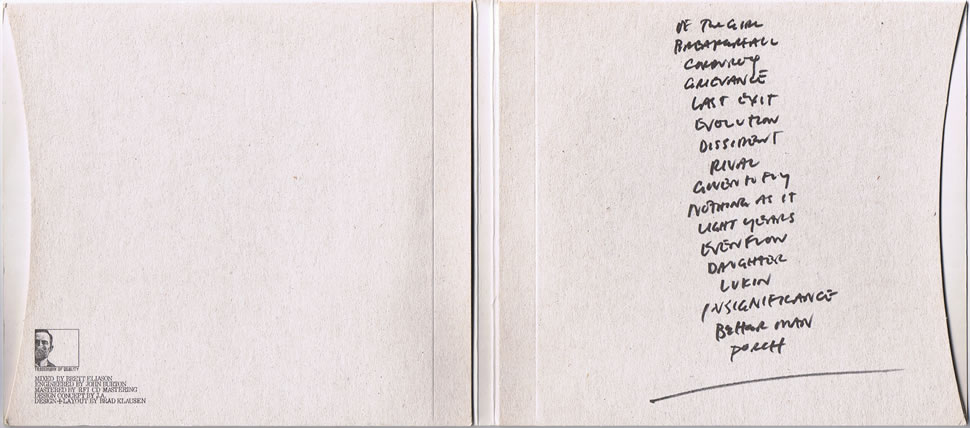 TRADEMARK OF QUALITY
MIXED BY BRETT ELIASON
ENGINEERED BY JOHN BURTON
MASTERED BY RFI CD MASTERING
DESIGN CONCEPT BY J.A.
DESIGN+LAYOUT BY BRAD KLAUSEN
OF THE GIRL
BREAKERFALL
CORDUROY
GRIEVANCE
LAST EXIT
EVOLUTION
DISSIDENT
RIVAL
GIVEN TO FLY
NOTHING AS IT
LIGHT YEARS
EVENFLOW
DAUGHTER
LUKIN
INSIGNIFICANCE
BETTER MAN
PORCH